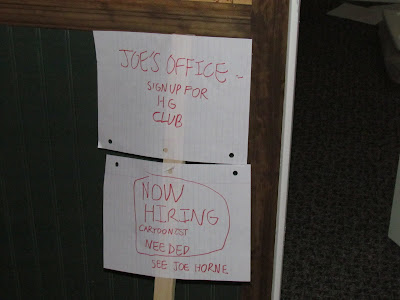 JOE'S OFFICE -
SIGN UP FOR
HG
CLUB
NOW
HIRING
CARTOONIST
NEEDED
SEE JOE HORNE